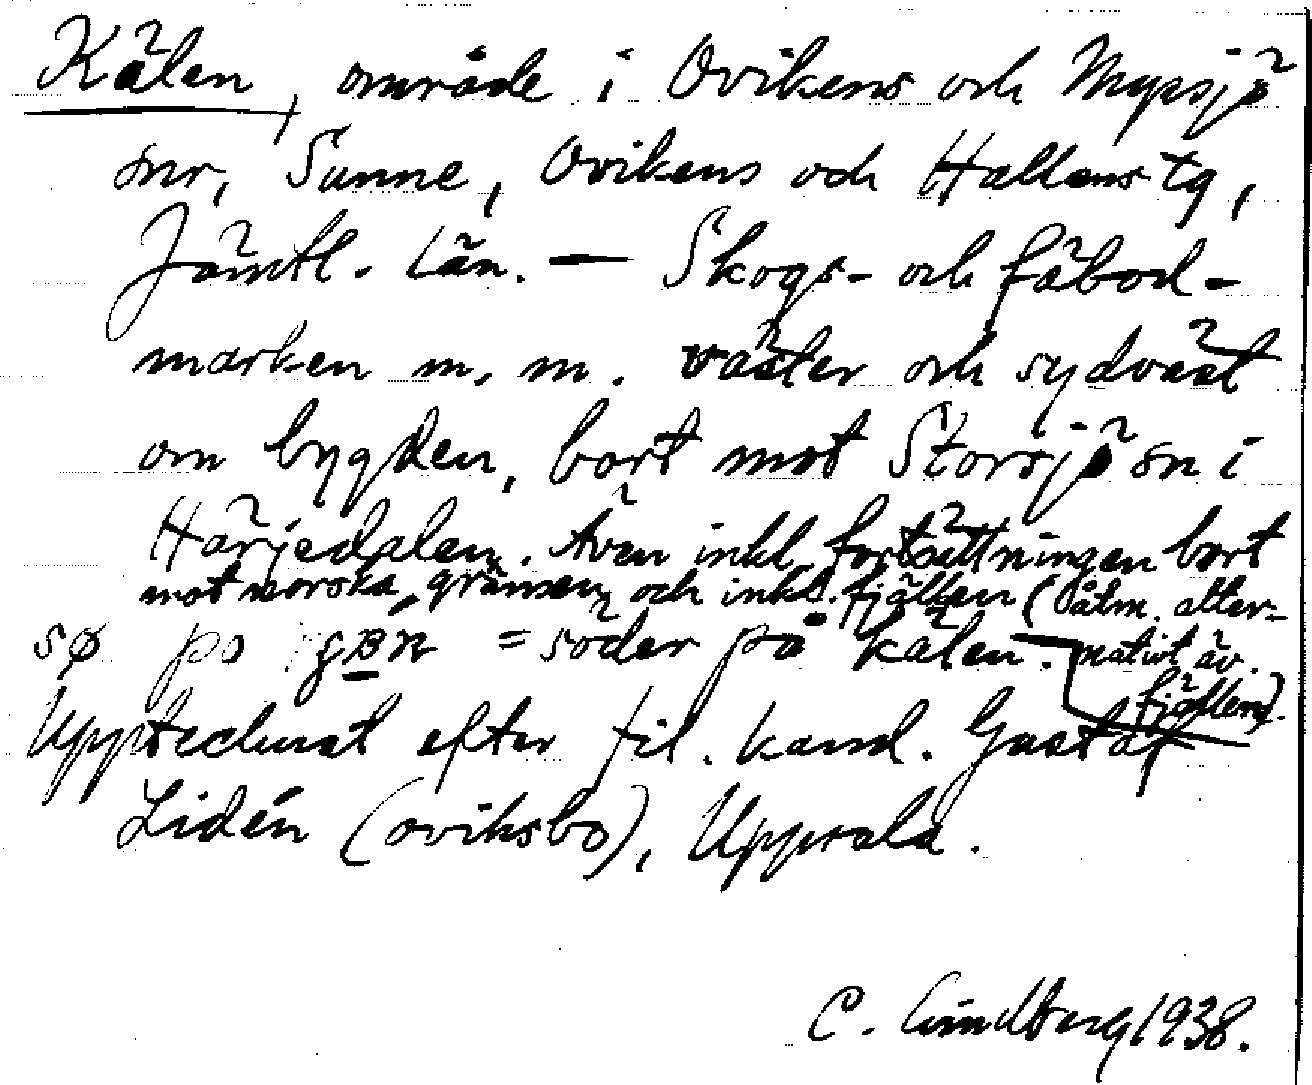 Kälen, område i Ovikens och Myssjö
snr, Sunne, Ovikens och Hallens tg,
Jämtl. län. — Skogs- och fäbod-
marken m. m. väster och sydväst
om bygden, bort mot Storsjö sn i
Härjedalen. Även inkl. fortsättningen bort
mot norska gränsen, och inkl. fjällen (åtm. alter-
nativt äv. fjällen).
sø po = söder på kälen.
Upptecknat efter fil. kand. Gustaf
Lidén (oviksbo), Uppsala.
C. Lindberg 1938.